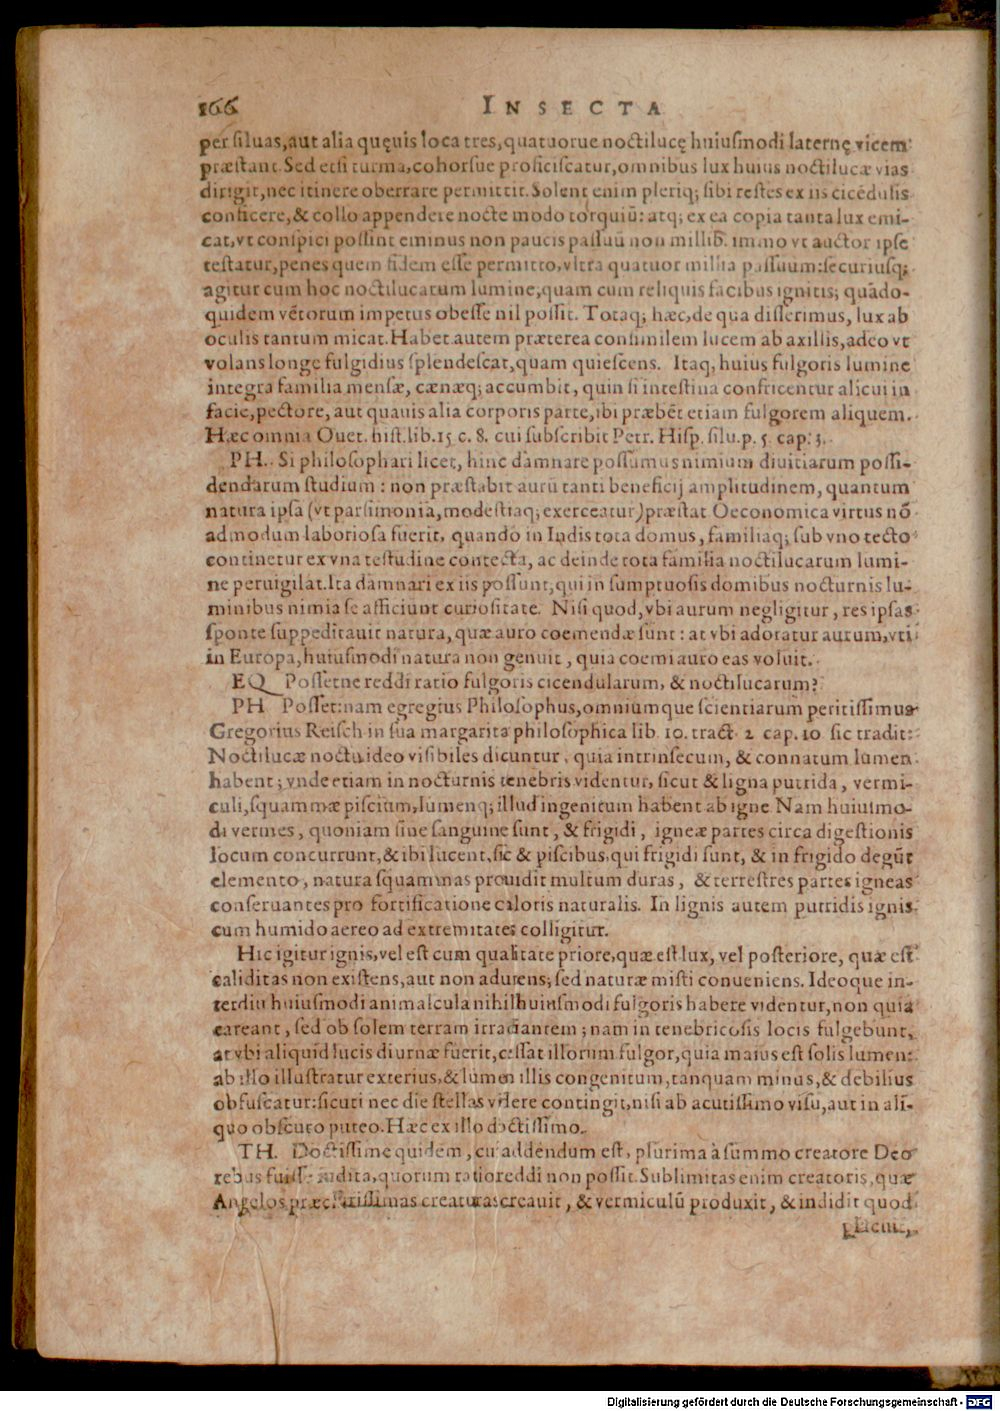 166 INSECTA
per siluas, aut alia quęuis loca tres, quatuorue noctilucę huiusmodi laternę vicem
præstant. Sed etsi turma, cohorsue proficiscatur, omnibus lux huius noctilucæ vias
dirigit, nec itinere oberrare permittit. Solent enim pleriq; sibi restes ex iis cicēdulis
conficere, & collo appendere nocte modo torquiū: atq; ex ea copia tanta lux emi-
cat, vt conspici possint eminus non paucis passuū non millib. immo vt auctor ipse
testatur, penes quem fidem esse permitto, vltra quatuor millia passuum: securiusq;
agitur cum hoc noctilucarum lumine, quam cum reliquis facibus ignitis; quādo-
quidem vētorum impetus obesse nil possit. Totaq; hæc, de qua disserimus, lux ab
oculis tantum micat. Habet autem præterea consimilem lucem ab axillis, adeo vt
volans longe fulgidius splendescat, quam quiescens. Itaq; huius fulgoris lumine
integra familia mensæ, cænæq; accumbit, quin si intestina confricentur alicui in
facie, pectore, aut quauis alia corporis parte, ibi præbēt etiam fulgorem aliquem.
Hæc omnia Ouet. hist. lib. 15 c. 8. cui subscribit Petr. Hisp. silu. p. 5. cap. 3.
PH. Si philosophari licet, hinc damnare possumus nimium diuitiarum possi-
dendarum studium: non præstabit aurū tanti beneficij amplitudinem, quantum
natura ipsa (vt parsimonia, modestiaq; exerceatur) præstat Oeconomica virtus nō
admodum laboriosa fuerit, quando in Indis tota domus, familiaq; sub vno tecto
continetur ex vna testudine contecta, ac deinde tota familia noctilucarum lumi-
ne peruigilat. Ita damnari ex iis possunt, qui in sumptuosis domibus nocturnis lu-
minibus nimia se afficiunt curiositate. Nisi quod, vbi aurum negligitur, res ipsas
sponte suppeditauit natura, quæ auro coemendæ sunt: at vbi adoratur aurum, vti
in Europa, huiusmodi natura non genuit, quia coemi auro eas voluit.
EQ Possetne reddi ratio fulgoris cicendularum, & noctilucarum?
PH Posset: nam egregius Philosophus, omniumque scientiarum peritissimus
Gregorius Reisch in sua margarita philosophica lib. 10. tract. 2 cap. 10 sic tradit:
Noctilucæ noctu ideo visibiles dicuntur, quia intrinsecum, & connatum lumen
habent; vnde etiam in nocturnis tenebris videntur, sicut & ligna putrida, vermi-
culi, squammæ piscium, lumenq; illud ingenitum habent ab igne Nam huiusmo-
di vermes, quoniam sine sanguine sunt, & frigidi, igneæ partes circa digestionis
locum concurrunt, & ibi lucent, sic & piscibus, qui frigidi sunt, & in frigido degūt
elemento, natura squammas prouidit multum duras, & terrestres partes igneas
conseruantes pro fortificatione caloris naturalis. In lignis autem putridis ignis
cum humido aereo ad extremitates colligitur.
Hic igitur ignis, vel est cum qualitate priore, quæ est lux, vel posteriore, quæ est
caliditas non existens, aut non adurens; sed naturæ misti conueniens. Ideoque in-
terdiu huiusmodi animalcula nihil huiusmodi fulgoris habere videntur, non quia
careant, sed ob solem terram irradiantem; nam in tenebricosis locis fulgebunt,
at vbi aliquid lucis diurnæ fuerit, cessat illorum fulgor, quia maius est solis lumen:
ab illo illustratur exterius, & lumen illis congenitum, tanquam minus, & debilius
obfuscatur: sicuti nec die stellas videre contingit, nisi ab acutissimo visu, aut in ali-
quo obscuro puteo. Hæc ex illo doctissimo.
TH. Doctissime quidem, cui addendum est, plurima à summo creatore Deo
rebus fuisse indita, quorum ratio reddi non possit. Sublimitas enim creatoris, quæ
Angelos præclarissimas creaturas creauit, & vermiculū produxit, & indidit quod
placuit,
Digitalisierung gefördert durch die Deutsche Forschungsgemeinschaft - DFG